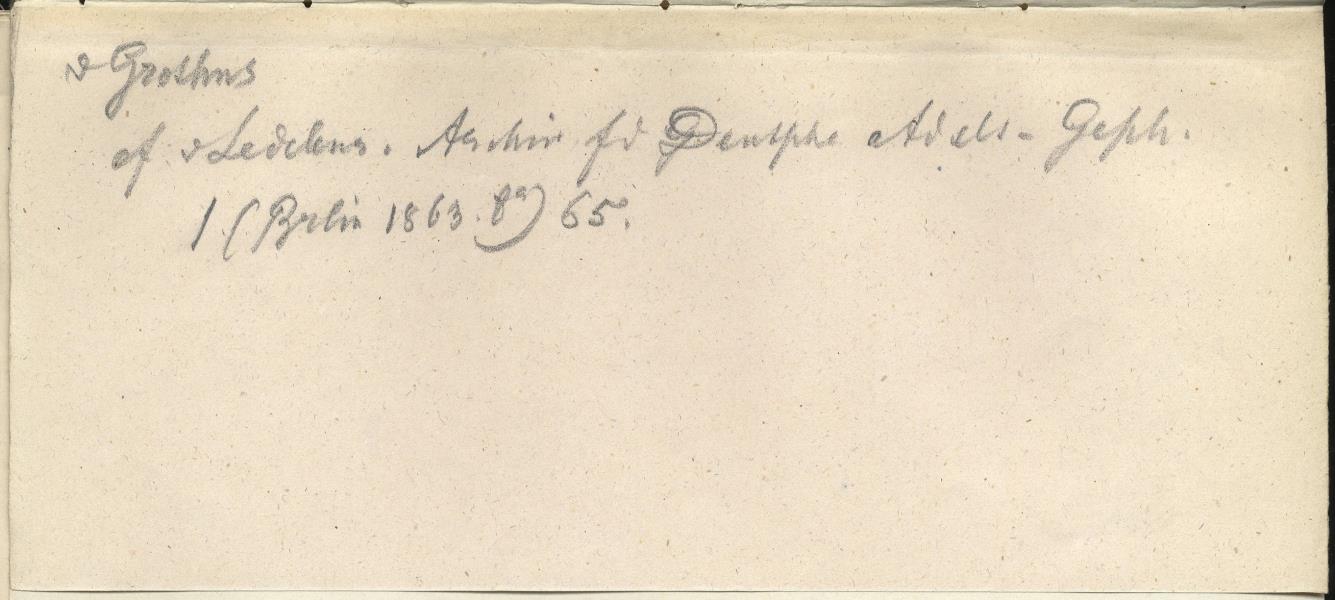 v Grothus
cf v Ledebur. Archiv fd Deutsche Adels-Gesch.
1 (Berlin 1863. 8°) 65.